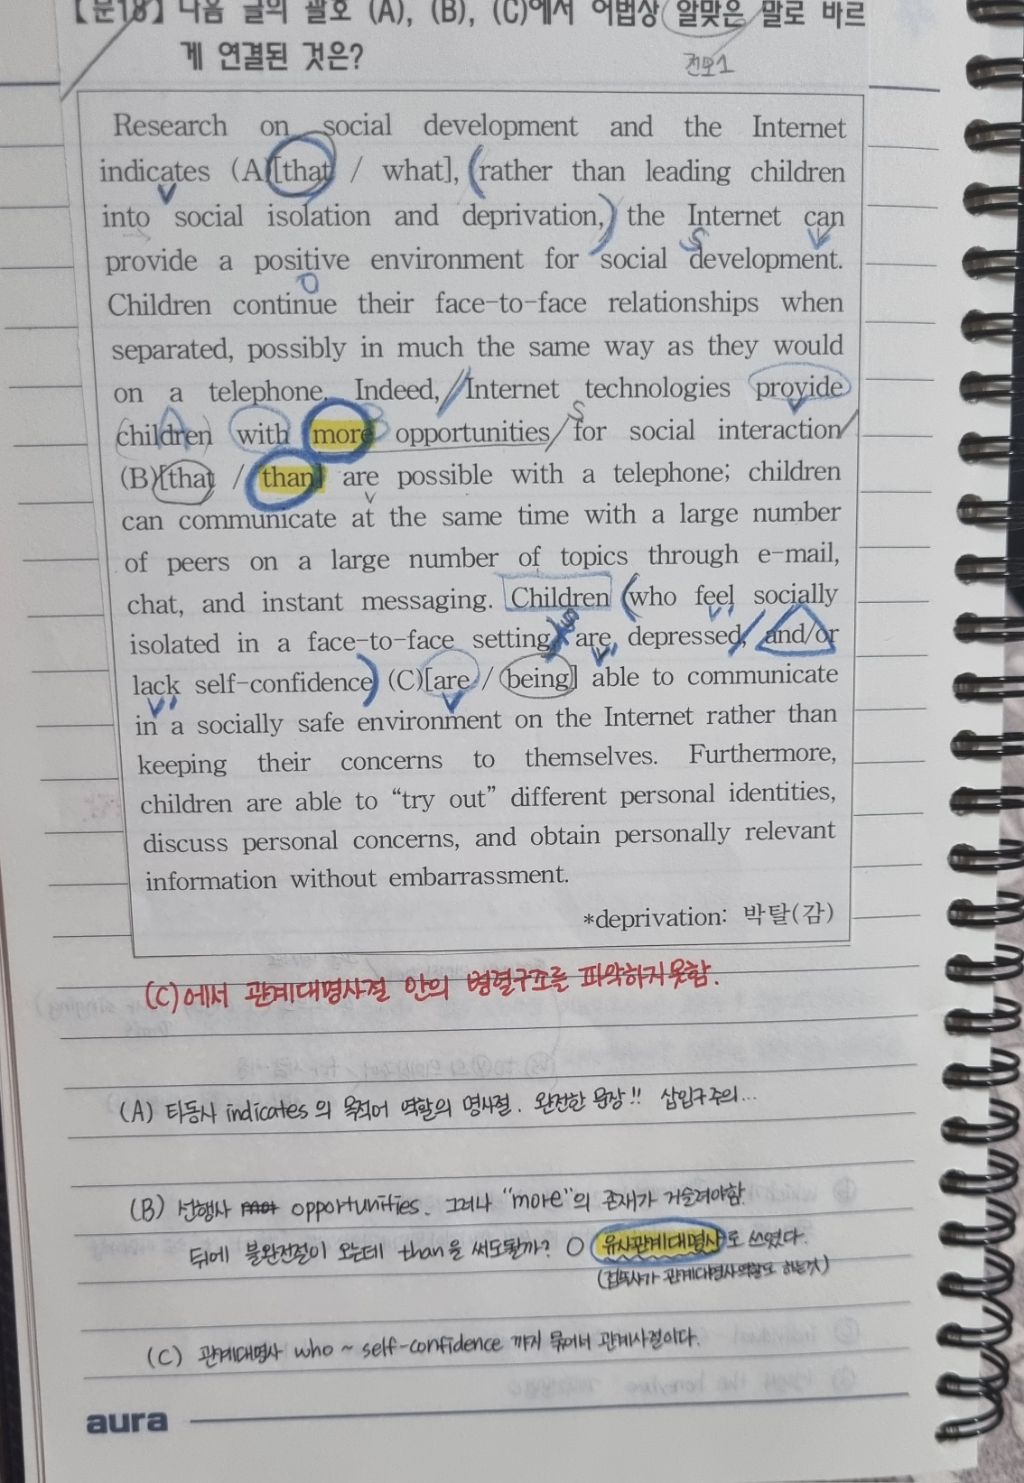 【문18】 다음 글의 괄호 (A), (B), (C)에서 어법상 알맞은 말로 바르
게 연결된 것은?
전모1
Research on social development and the Internet
indicates (A)[that / what], rather than leading children
into social isolation and deprivation, the Internet can
provide a positive environment for social development.
Children continue their face-to-face relationships when
separated, possibly in much the same way as they would
on a telephone. Indeed, Internet technologies provide
children with more opportunities for social interaction
(B)[that / than] are possible with a telephone; children
can communicate at the same time with a large number
of peers on a large number of topics through e-mail,
chat, and instant messaging. Children who feel socially
isolated in a face-to-face setting, are depressed, and/or
lack self-confidence (C)[are / being] able to communicate
in a socially safe environment on the Internet rather than
keeping their concerns to themselves. Furthermore,
children are able to “try out” different personal identities,
discuss personal concerns, and obtain personally relevant
information without embarrassment.
*deprivation: 박탈(감)
(C)에서 관계대명사절 안의 병렬구조를 파악하지못함.
(A) 타동사 indicates의 목적어 역할의 명사절. 완전한 문장!! 삽입구주의...
(B) 선행사 opportunities. 그러나 "more"의 존재가 거슬려야함.
뒤에 불완전절이 오는데 than을 써도될까? O 유사관계대명사로 쓰였다.
(접속사가 관계대명사역할도 하는것)
(C) 관계대명사 who ~ self-confidence 까지 묶어서 관계사절이다.
aura